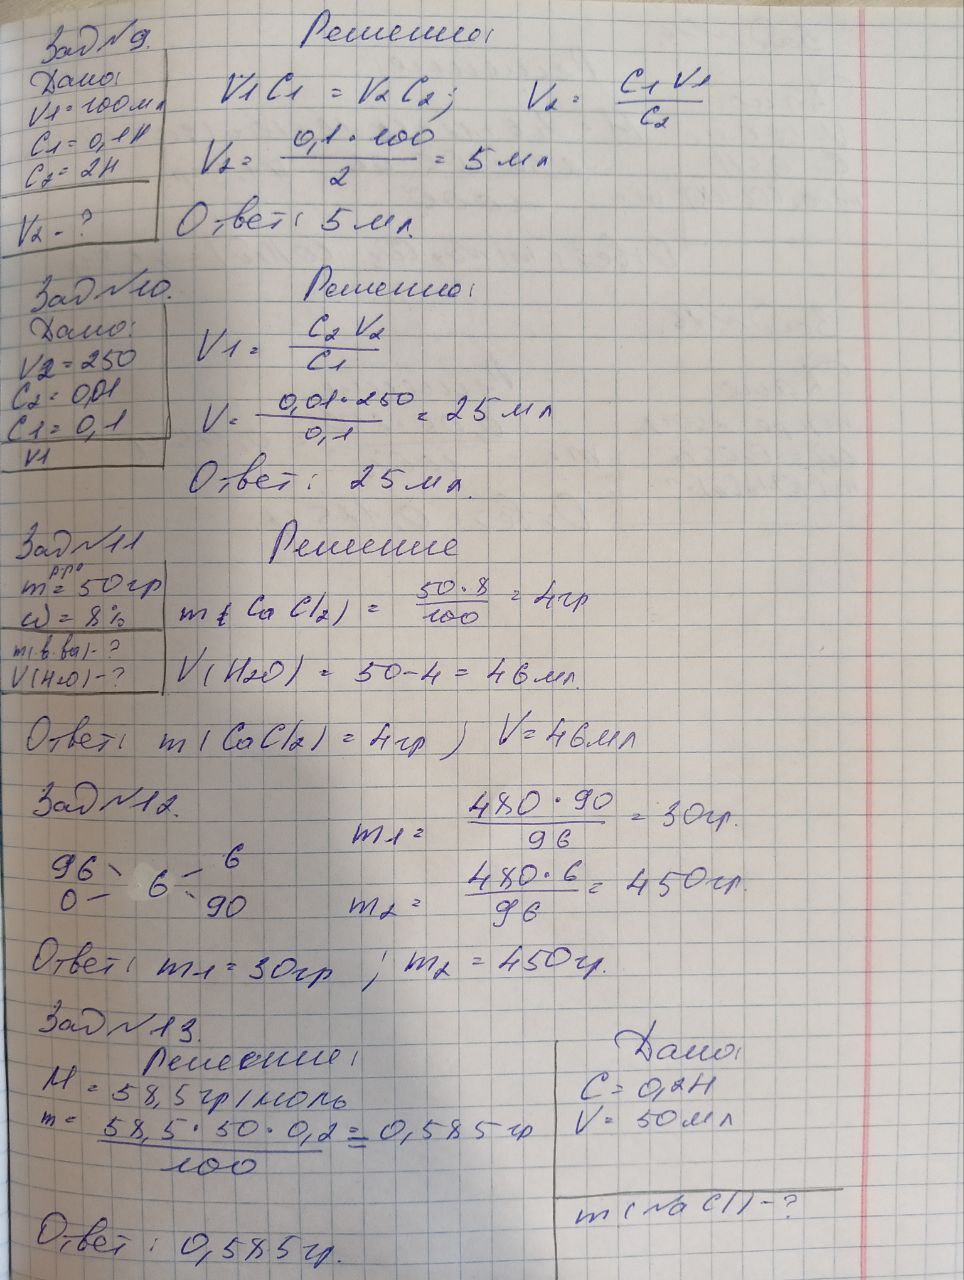 Зад №9.
Решение:
Дано:
V1 = 100мл
C1 = 0,1Н
C2 = 2Н
V2 - ?
V1C1 = V2C2; V2 = C1V1/C2
V2 = 0,1·100/2 = 5мл
Ответ: 5мл.
Зад №10.
Решение:
Дано:
V2 = 250
C2 = 0,01
C1 = 0,1
V1
V1 = C2V2/C1
V = 0,01·250/0,1 = 25мл
Ответ: 25мл.
Зад №11
Решение
m р-ра = 50гр
ω = 8%
m(в-ва) - ?
V(H2O) - ?
m(CaCl2) = 50·8/100 = 4гр
V(H2O) = 50-4 = 46мл
Ответ: m(CaCl2) = 4гр; V = 46мл
Зад №12.
96 6 6
0 90
m1 = 480·90/96 = 30гр.
m2 = 480·6/96 = 450гр.
Ответ: m1 = 30гр; m2 = 450гр.
Зад №13.
Решение:
M = 58,5гр/моль
m = 58,5·50·0,2/100 = 0,585гр
Дано:
C = 0,2Н
V = 50мл
m(NaCl) - ?
Ответ: 0,585гр.